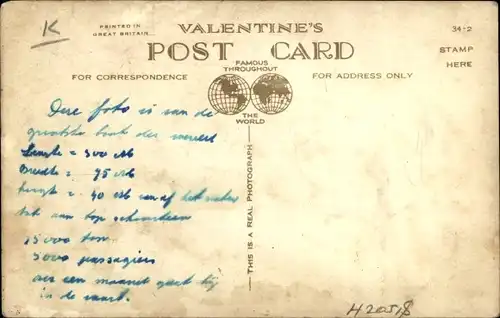 K
PRINTED IN
GREAT BRITAIN
VALENTINE'S
POST CARD
34-2
STAMP
HERE
FOR CORRESPONDENCE
FAMOUS
THROUGHOUT
THE
WORLD
FOR ADDRESS ONLY
THIS IS A REAL PHOTOGRAPH
Deze foto is van de
grootste boot der wereld
Lengte = 300 M
Breedte = 35 M
hoogte = 40 M vanaf het water
tot aan top schoorsteen
75000 ton
5000 passagiers
over een maand gaat hij
in de vaart.
H 20518